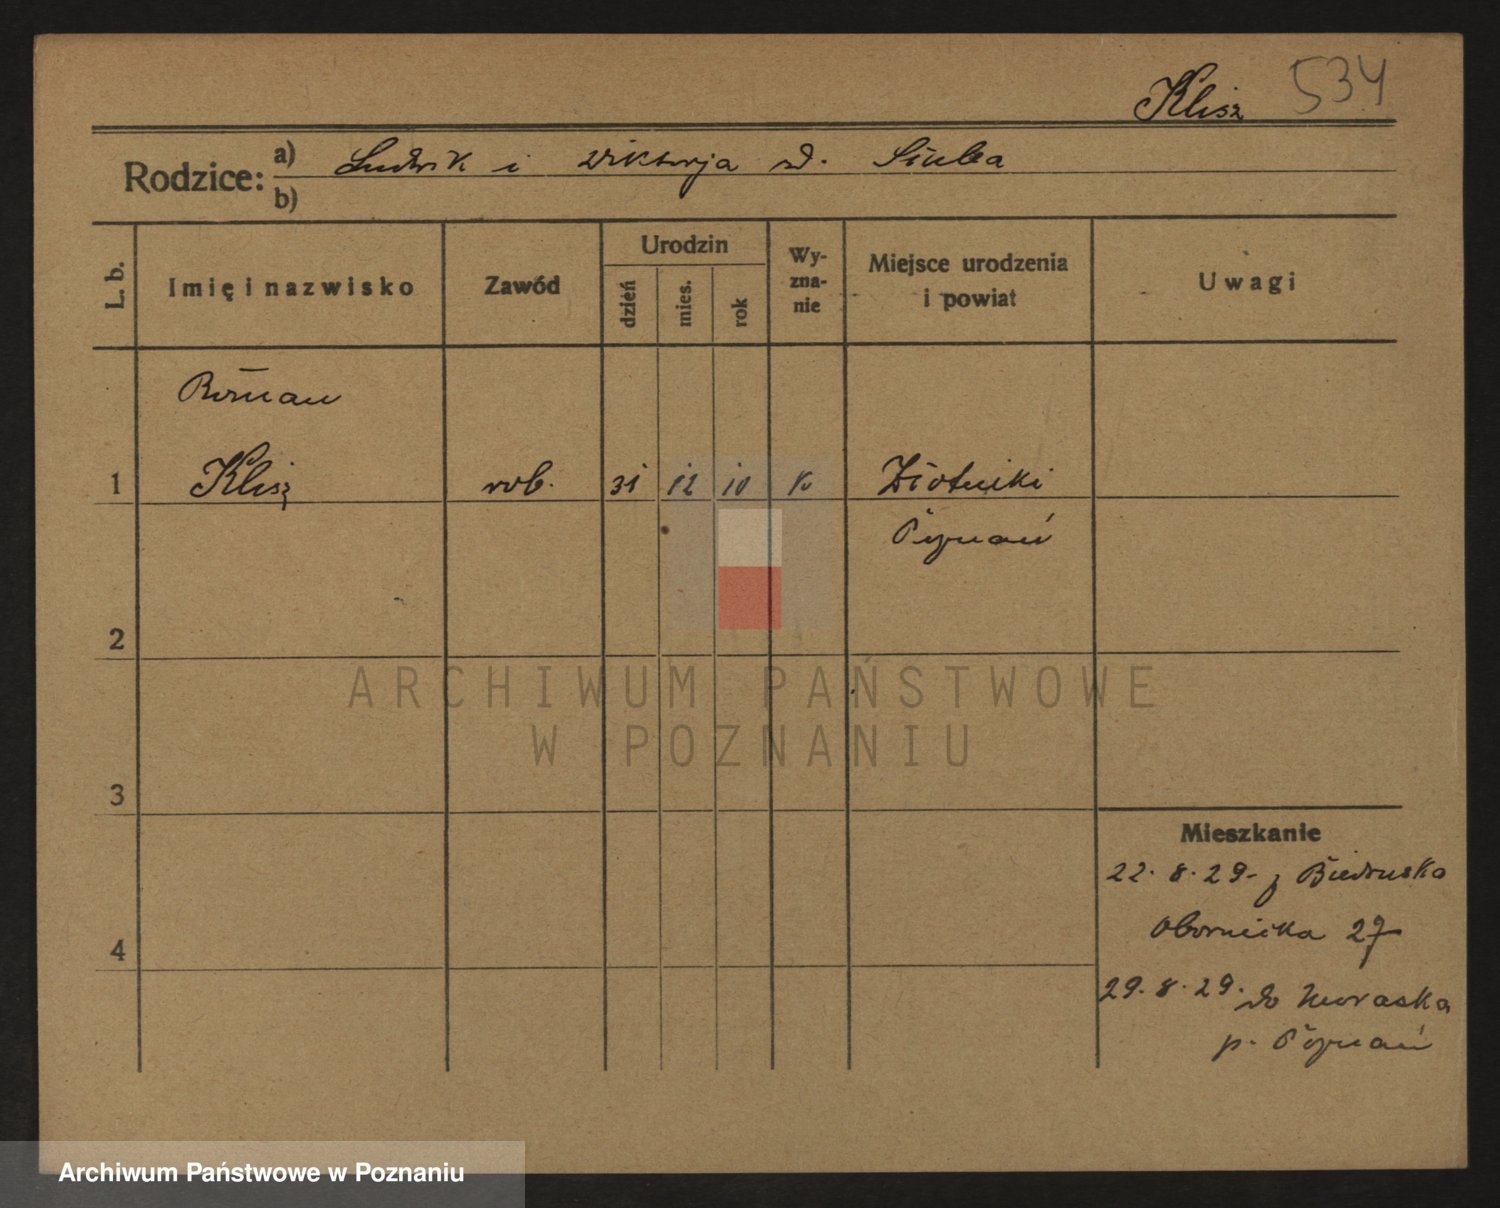 Klisz 534
Rodzice: a) Ludwik i Wiktorja d.
b)
L. b. Imię i nazwisko Zawód Urodzin dzień mies. rok Wy-zna-nie Miejsce urodzenia i powiat Uwagi
Roman
1 Klisz rob. 31 12 10 k Złotniki
Poznań
2
ARCHIWUM PAŃSTWOWE
W POZNANIU
3
Mieszkanie
22. 8. 29. z Biedruska
4 Obornicka 27
29. 8. 29. do Moraska
p. Poznań
Archiwum Państwowe w Poznaniu